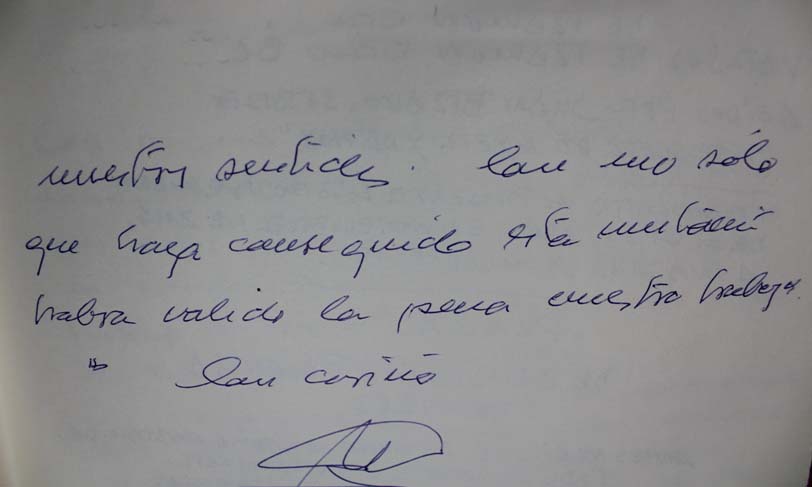 nuestros sentidos. Con uno sólo
que haya conseguido esta
habra valido la pena nuestro trabajo.
Con cariño